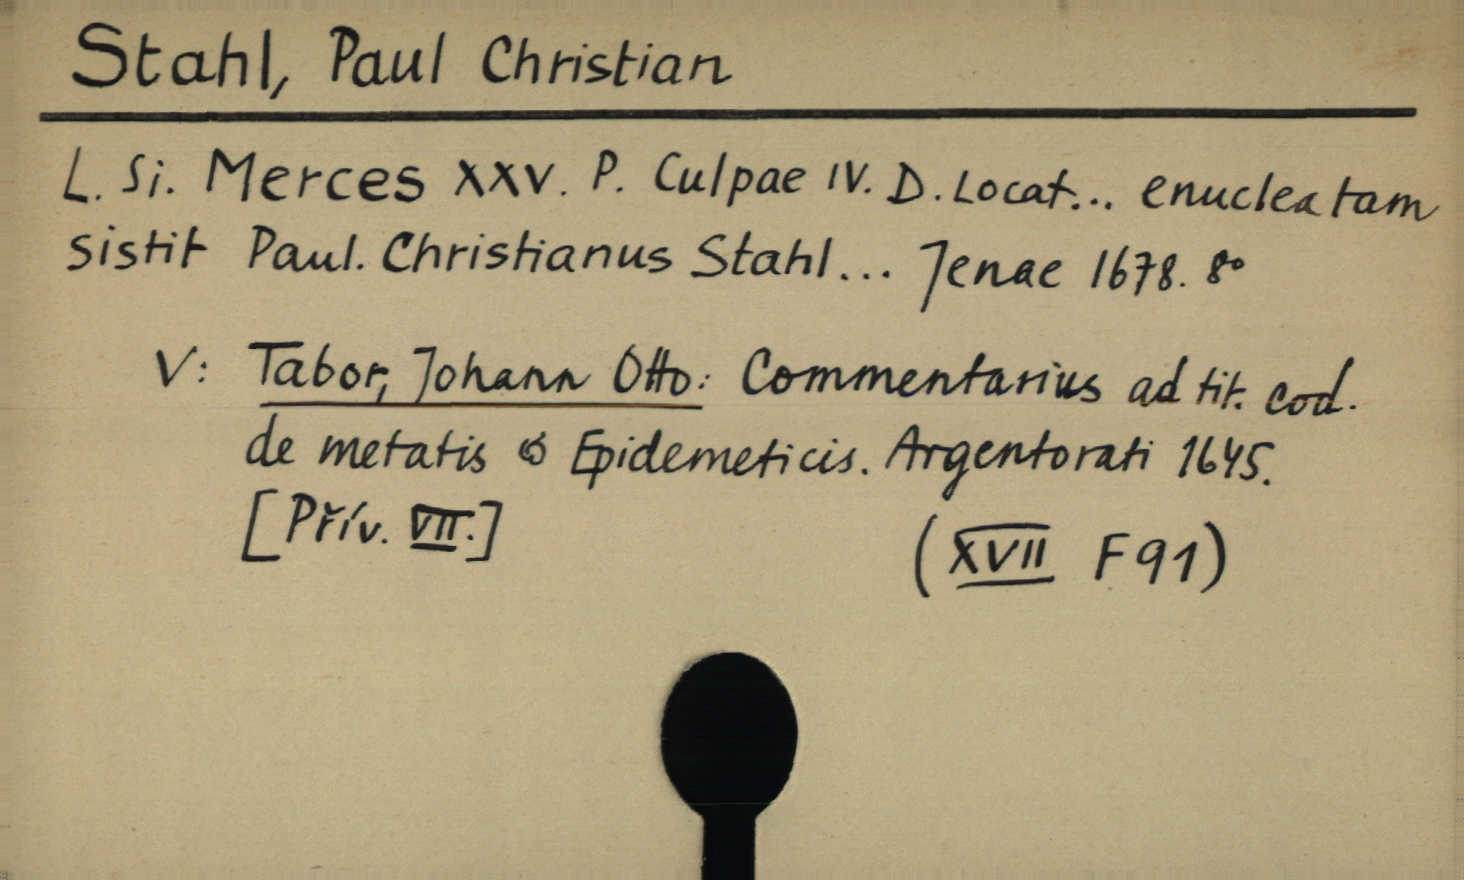 Stahl, Paul Christian
L. Si. Merces XXV. P. Culpae IV. D. Locat... enucleatam
sistit Paul. Christianus Stahl... Jenae 1678. 8°
V: Tabor, Johann Otto: Commentarius ad tit. cod.
de metatis & Epidemeticis. Argentorati 1645.
[Přív. VII.] (XVII F 91)